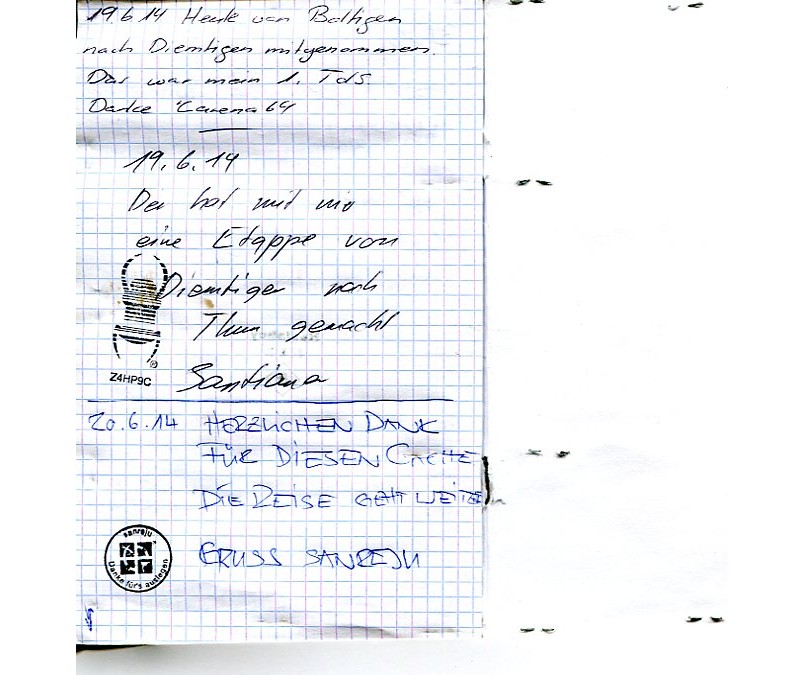 19.6.14 Heute von Boltigen
nach Diemtigen mitgenommen.
Das war mein 1. TdS.
Danke Carena64
19.6.14
Der hat mit mir
eine Etappe von
Diemtigen nach
Thun gemacht
Santiana
Z4HP9C
20.6.14 HERZLICHEN DANK
FÜR DIESEN CACHE
DIE REISE GEHT WEITER
GRUSS SANREJU
sanreju
Danke für's auslegen